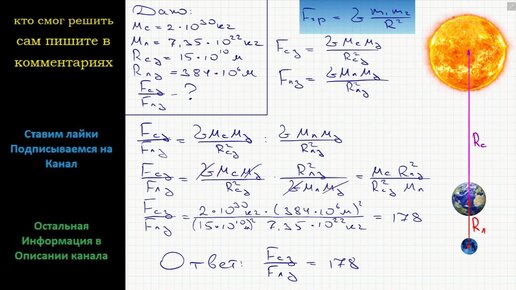 кто смог решить
сам пишите в
комментариях
Ставим лайки
Подписываемся на
Канал
Остальная
Информация в
Описании канала
Дано:
Mc = 2·10³⁰кг
Mл = 7,35·10²²кг
Rсз = 15·10¹⁰ м
Rлз = 384·10⁶ м
Fсз/Fлз - ?
Fгр = G m₁m₂/R²
Fсз = G McMз/R²сз
Fлз = G MлMз/R²лз
Fсз/Fлз = G McMз/R²сз : G MлMз/R²лз
Fсз/Fлз = G McMз/R²сз · R²лз/G MлMз = Mc R²лз/R²сз Mл
Fсз/Fлз = 2·10³⁰кг·(384·10⁶м)²/(15·10¹⁰м)² 7,35·10²²кг = 178
Ответ: Fсз/Fлз = 178
Rс
Rл